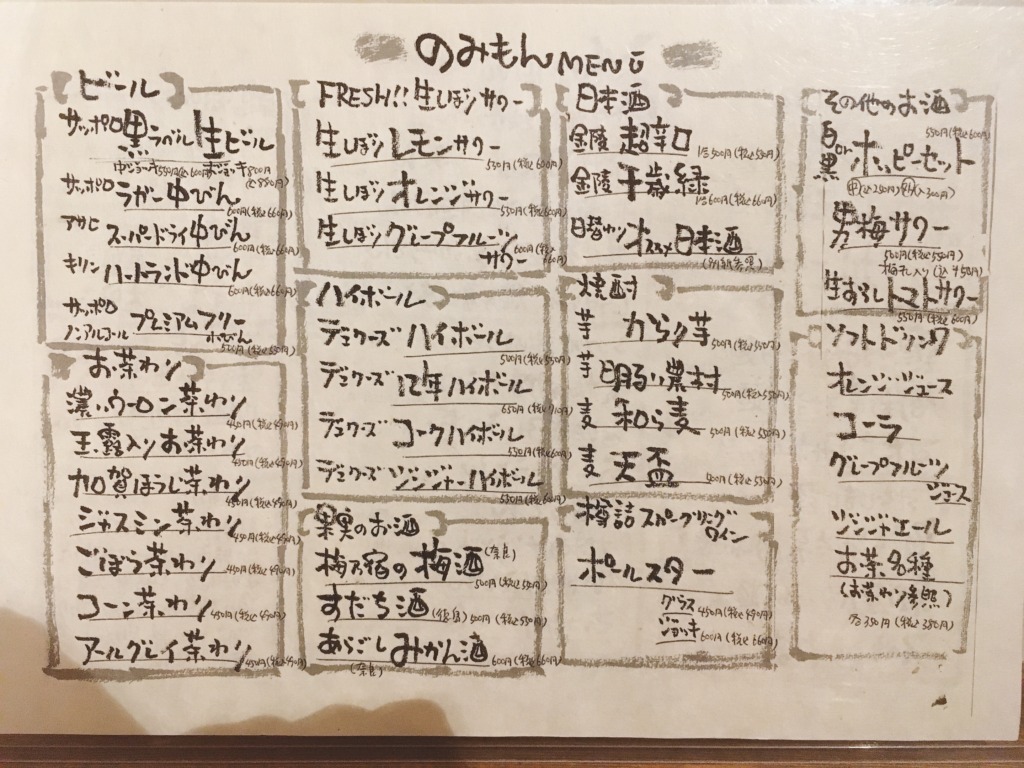 のみもんMENU
ビール
サッポロ黒ラベル生ビール
中ジョーキ550円(込600円)
大ジョッキ800円(込880円)
サッポロ ラガー中びん
600円(税込660円)
アサヒ スーパードライ中びん
600円(税込660円)
キリン ハートランド中びん
600円(税込660円)
サッポロ ノンアルコール プレミアムフリー 小びん
500円(税込550円)
お茶わり
濃いウーロン茶わり
450円(税込490円)
玉露入りお茶わり
450円(税込490円)
加賀ほうじ茶わり
450円(税込490円)
ジャスミン茶わり
450円(税込490円)
ごぼう茶わり
450円(税込490円)
コーン茶わり
450円(税込490円)
アールグレイ茶わり
450円(税込490円)
FRESH!!生しぼりサワー
生しぼりレモンサワー
550円(税込600円)
生しぼりオレンジサワー
550円(税込600円)
生しぼりグレープフルーツサワー
600円(税込660円)
ハイボール
デュワーズ ハイボール
500円(税込550円)
デュワーズ 12年ハイボール
650円(税込710円)
デュワーズ コークハイボール
550円(税込600円)
デュワーズ ジンジャーハイボール
550円(税込600円)
果実のお酒
梅乃宿の梅酒(奈良)
500円(税込550円)
すだち酒
(徳島)500円(税込550円)
あらごしみかん酒
(奈良)
600円(税込660円)
日本酒
金陵 超辛口
1合500円(税込550円)
金陵 千歳緑
1合600円(税込660円)
日替わり オススメ日本酒
(別紙参照)
焼酎
芋 からり芋
500円(税込550円)
芋 明るい農村
500円(税込550円)
麦 和ら麦
500円(税込550円)
麦 天盃
500円(税込550円)
樽詰スパークリングワイン
ポールスター
グラス450円(税込490円)
ジョッキ600円(税込660円)
その他のお酒
550円(税込600円)
白or黒 ホッピーセット
中(込250円)外(込300円)
男梅サワー
500円(税込550円)
梅干し入り(込+50円)
生すりおろしトマトサワー
550円(税込600円)
ソフトドリンク
オレンジジュース
コーラ
グレープフルーツジュース
ジンジャエール
お茶各種
(お茶わり参照)
350円(税込380円)